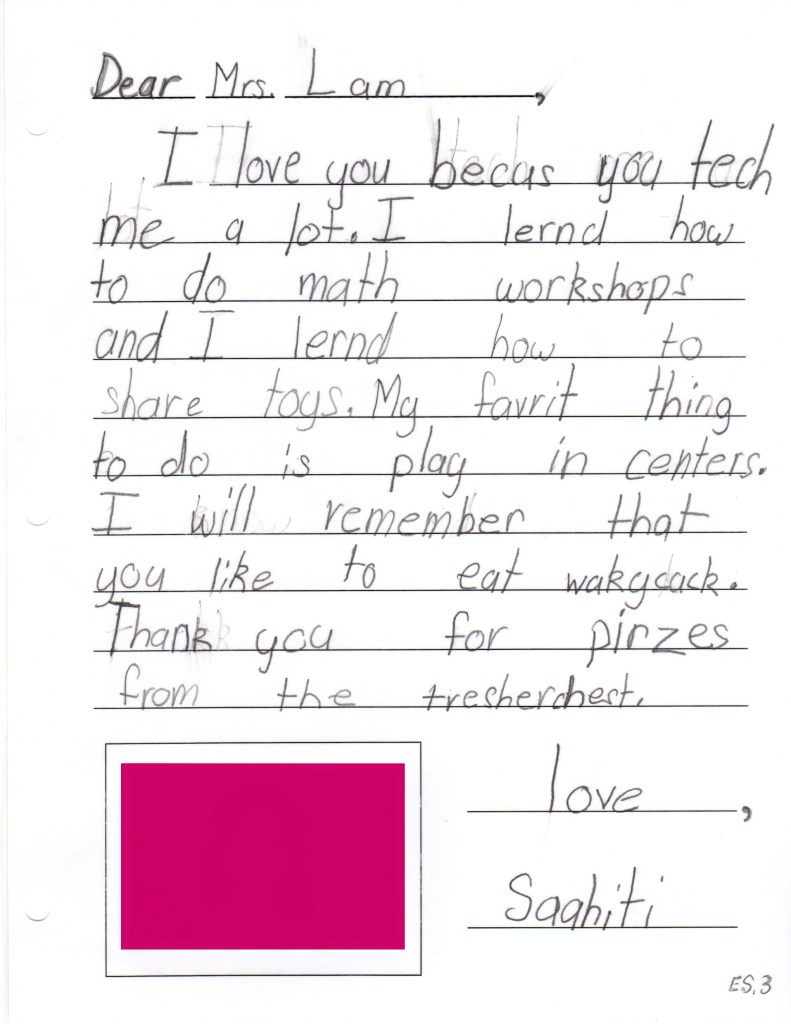 Dear Mrs. Lam,
I love you becas you tech
me a lot. I lernd how
to do math workshops
and I lernd how to
share toys. My favrit thing
to do is play in centers.
I will remember that
you like to eat wakycack.
Thank you for pirzes
from the tresherchest.
love,
Saahiti
ES.3